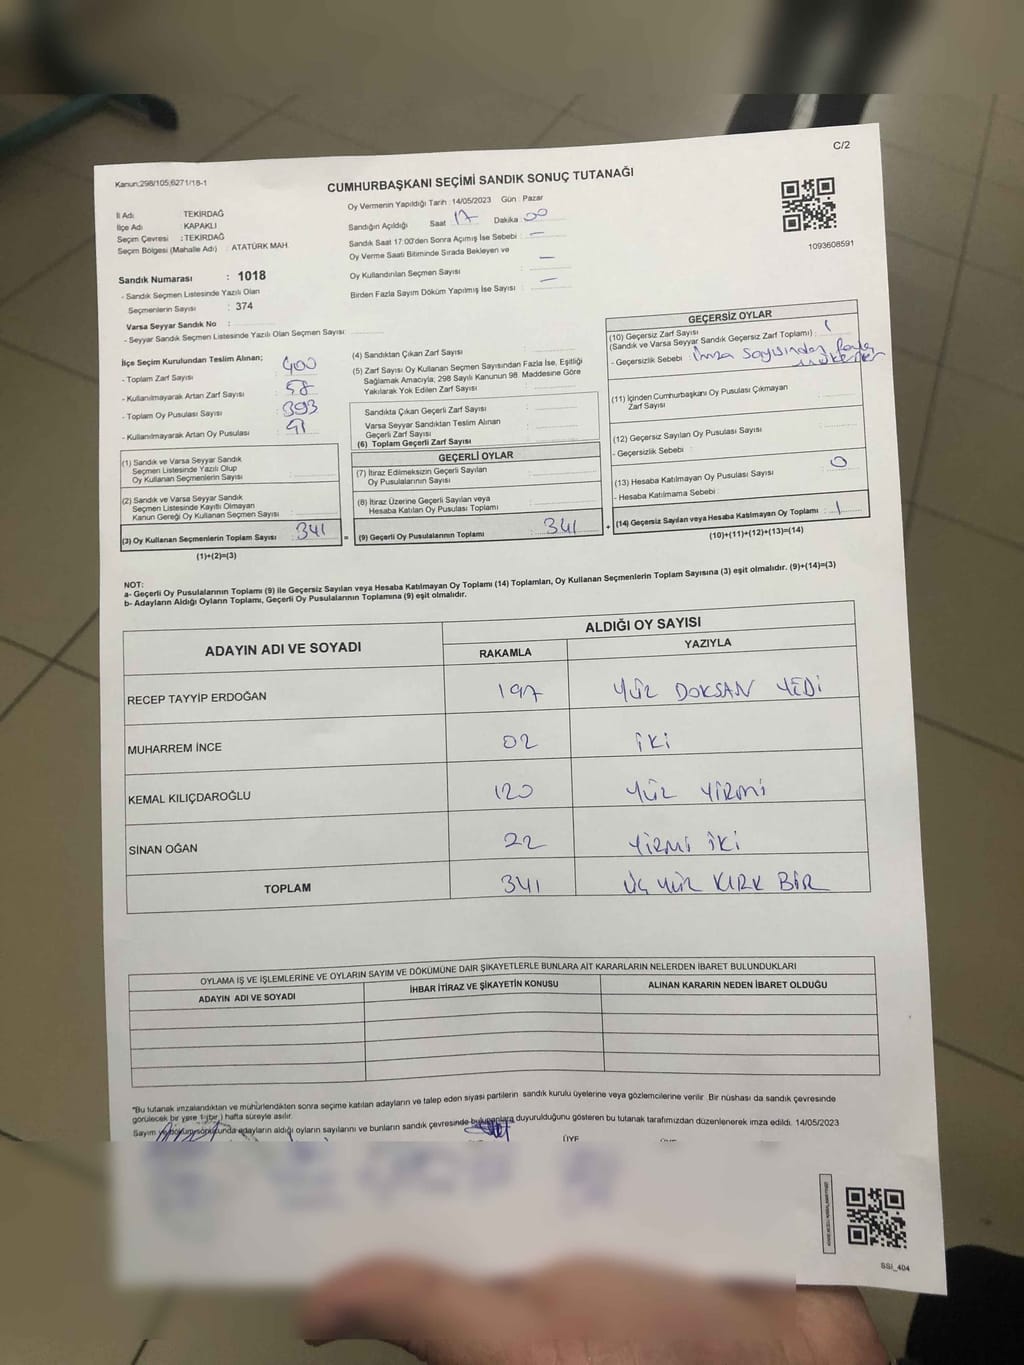 C/2
Kanun;298/105;6271/18-1
CUMHURBAŞKANI SEÇİMİ SANDIK SONUÇ TUTANAĞI
1093608591
İl Adı TEKİRDAĞ
İlçe Adı : KAPAKLI
Seçim Çevresi : TEKİRDAĞ
Seçim Bölgesi (Mahalle Adı) : ATATÜRK MAH.
Sandık Numarası : 1018
- Sandık Seçmen Listesinde Yazılı Olan
Seçmenlerin Sayısı : 374
Varsa Seyyar Sandık No :
- Seyyar Sandık Seçmen Listesinde Yazılı Olan Seçmen Sayısı:
Oy Vermenin Yapıldığı Tarih : 14/05/2023 Gün : Pazar
Sandığın Açıldığı Saat 17 Dakika : 00
Sandık Saat 17:00'den Sonra Açımış İse Sebebi : —
Oy Verme Saati Bitiminde Sırada Bekleyen ve
Oy Kullandırılan Seçmen Sayısı : —
Birden Fazla Sayım Döküm Yapılmış İse Sayısı : —
İlçe Seçim Kurulundan Teslim Alınan;
- Toplam Zarf Sayısı : 400
- Kullanılmayarak Artan Zarf Sayısı : 58
- Toplam Oy Pusulası Sayısı : 393
- Kullanılmayarak Artan Oy Pusulası :
(1) Sandık ve Varsa Seyyar Sandık
Seçmen Listesinde Yazılı Olup
Oy Kullanan Seçmenlerin Sayısı :
(2) Sandık ve Varsa Seyyar Sandık
Seçmen Listesinde Kayıtlı Olmayan
Kanun Gereği Oy Kullanan Seçmen Sayısı :
(3) Oy Kullanan Seçmenlerin Toplam Sayısı : 341
(1)+(2)=(3)
(4) Sandıktan Çıkan Zarf Sayısı :
(5) Zarf Sayısı Oy Kullanan Seçmen Sayısından Fazla İse, Eşitliği
Sağlamak Amacıyla; 298 Sayılı Kanunun 98. Maddesine Göre
Yakılarak Yok Edilen Zarf Sayısı :
Sandıkta Çıkan Geçerli Zarf Sayısı :
Varsa Seyyar Sandıktan Teslim Alınan
Geçerli Zarf Sayısı :
(6) Toplam Geçerli Zarf Sayısı :
GEÇERLİ OYLAR
(7) İtiraz Edilmeksizin Geçerli Sayılan
Oy Pusulalarının Sayısı :
(8) İtiraz Üzerine Geçerli Sayılan veya
Hesaba Katılan Oy Pusulası Toplamı :
= (9) Geçerli Oy Pusulalarının Toplamı : 341
GEÇERSİZ OYLAR
(10) Geçersiz Zarf Sayısı : 1
(Sandık ve Varsa Seyyar Sandık Geçersiz Zarf Toplamı)
- Geçersizlik Sebebi : imza sayısından fazla
(11) İçinden Cumhurbaşkanı Oy Pusulası Çıkmayan
Zarf Sayısı :
(12) Geçersiz Sayılan Oy Pusulası Sayısı :
- Geçersizlik Sebebi :
(13) Hesaba Katılmayan Oy Pusulası Sayısı : 0
- Hesaba Katılmama Sebebi :
+ (14) Geçersiz Sayılan veya Hesaba Katılmayan Oy Toplamı : 1
(10)+(11)+(12)+(13)=(14)
NOT:
a- Geçerli Oy Pusulalarının Toplamı (9) ile Geçersiz Sayılan veya Hesaba Katılmayan Oy Toplamı (14) Toplamları, Oy Kullanan Seçmenlerin Toplam Sayısına (3) eşit olmalıdır. (9)+(14)=(3)
b- Adayların Aldığı Oyların Toplamı, Geçerli Oy Pusulalarının Toplamına (9) eşit olmalıdır.
ADAYIN ADI VE SOYADI ALDIĞI OY SAYISI
RAKAMLA YAZIYLA
RECEP TAYYİP ERDOĞAN 197 YÜZ DOKSAN YEDİ
MUHARREM İNCE 02 İKİ
KEMAL KILIÇDAROĞLU 120 YÜZ YİRMİ
SİNAN OĞAN 22 YİRMİ İKİ
TOPLAM 341 ÜÇ YÜZ KIRK BİR
OYLAMA İŞ VE İŞLEMLERİNE VE OYLARIN SAYIM VE DÖKÜMÜNE DAİR ŞİKAYETLERLE BUNLARA AİT KARARLARIN NELERDEN İBARET BULUNDUKLARI
ADAYIN ADI VE SOYADI İHBAR İTİRAZ VE ŞİKAYETİN KONUSU ALINAN KARARIN NEDEN İBARET OLDUĞU
"Bu tutanak imzalandıktan ve mühürlendikten sonra seçime katılan adayların ve talep eden siyasi partilerin sandık kurulu üyelerine veya gözlemcilerine verilir. Bir nüshası da sandık çevresinde
görülecek bir yere 1 (bir) hafta süreyle asılır.
Sayım ve döküm sonucunda adayların aldığı oyların sayılarını ve bunların sandık çevresinde bulunanlara duyurulduğunu gösteren bu tutanak tarafımızdan düzenlenerek imza edildi. 14/05/2023
ÜYE
SSİ_404